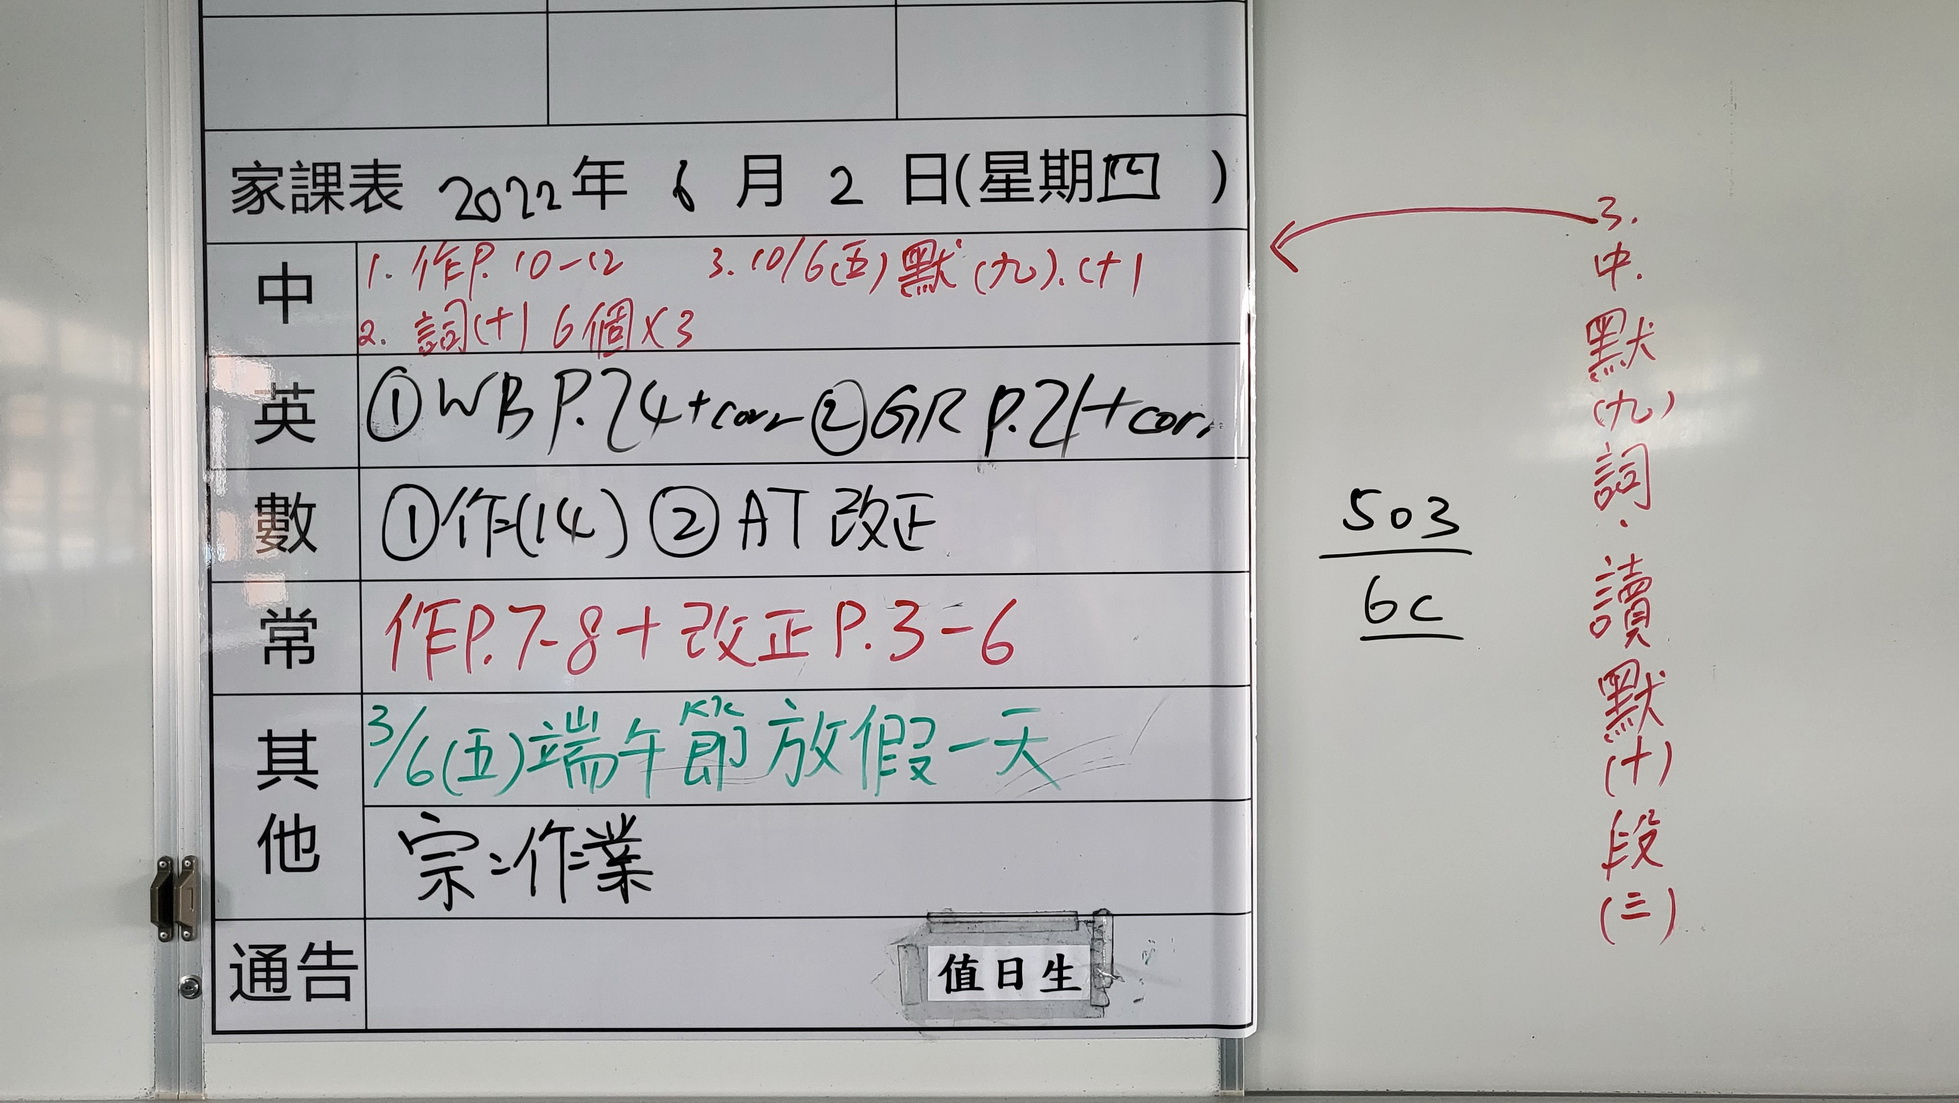 家課表 2022年 6月 2日(星期四)
中
1. 作P. 10-12 3. 10/6(五)默(九).(十)
2. 詞(十) 6個X3
英
①WB P.24+corr ②GR P.21+corr
數
①作(14) ②AT改正
常
作P.7-8+改正P.3-6
其他
3/6(五)端午節放假一天
宗:作業
通告
值日生
503
6C
3.
中.
默
(九)
詞.
讀
默
(十)
段
(三)